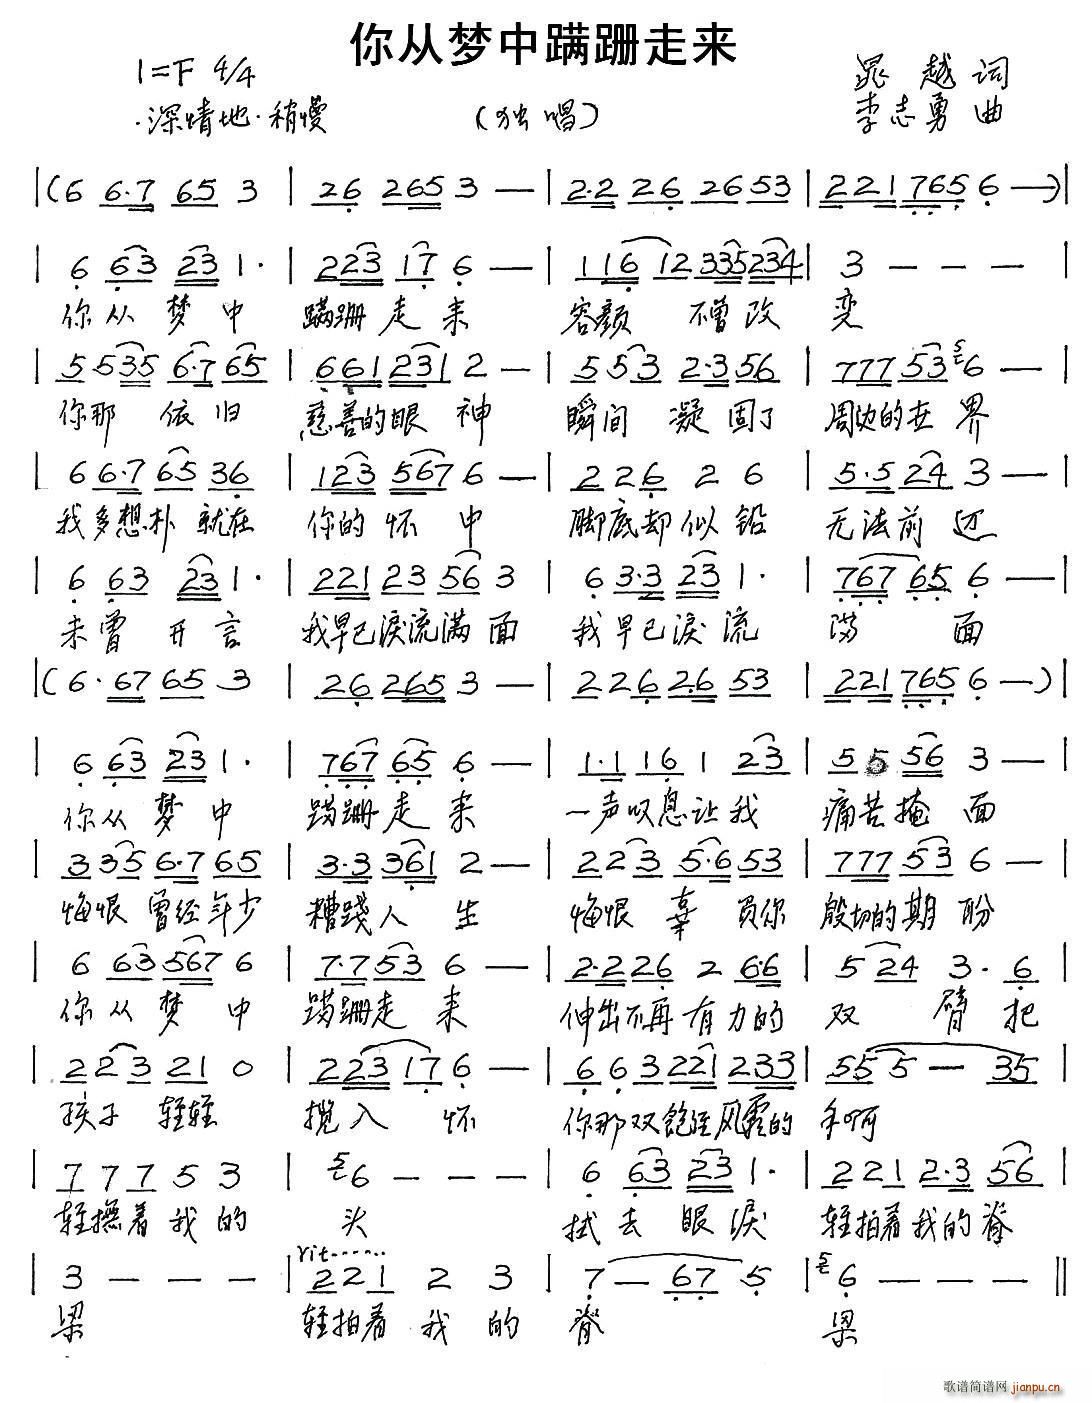 你从梦中蹒跚走来
1=F 4/4
晁越词
·深情地·稍慢
(独唱)
李志勇曲
|(6 6·7 65 3 | 26 265 3 — | 2·2 26 2653 | 221 765 6 —)|
| 6 63 23 1· | 223 17 6 — | 116 12 335234 | 3 — — — |
你从梦中 蹒跚走来 容颜不曾改变
| 5 535 6·7 65 | 661 231 2 — | 5 53 2·3 56 | 777 53 56 — |
你那依旧 慈善的眼神 瞬间凝固了 周边的世界
| 6 6·7 65 36 | 123 567 6 — | 2 26 2 6 | 5·5 24 3 — |
我多想朴就在 你的怀中 脚底却似铅 无法前迈
| 6 63 23 1· | 221 23 56 3 | 6 3·3 23 1· | 767 65 6 — |
未曾开言 我早已淚流满面 我早已淚流 满面
|(6·67 65 3 | 26 265 3 — | 2 26 2·6 53 | 221 765 6 —)|
| 6 63 23 1· | 767 65 6 — | 1·1 16 1 23 | 5 5 56 3 — |
你从梦中 蹒跚走来 一声叹息让我 痛苦掩面
| 3 35 6·7 65 | 3·3 361 2 — | 2 23 5·6 53 | 777 53 6 — |
悔恨曾经年少 糟踐人生 悔恨辜负你 殷切的期盼
| 6 63 567 6 | 7·7 53 6 — | 2·2 26 2 6·6 | 5 24 3· 6 |
你从梦中 蹒跚走来 伸出不再有力的 双臂把
| 2 23 21 0 | 223 17 6 — | 6 63 221 233 | 55 5 — 35 |
孩子轻轻 揽入怀 你那双饱经风霜的 手啊
| 7 7 7 5 3 | 56 — — — | 6 63 23 1· | 2 21 2·3 56 |
轻撫着我的 头 拭去眼淚 轻拍着我的脊
rit······
| 3 — — — | 2 2 1 2 3 | 7 — 67 5 | 56 — — — ‖
梁 轻拍着我的 脊 梁
歌谱简谱网 jianpu.cn